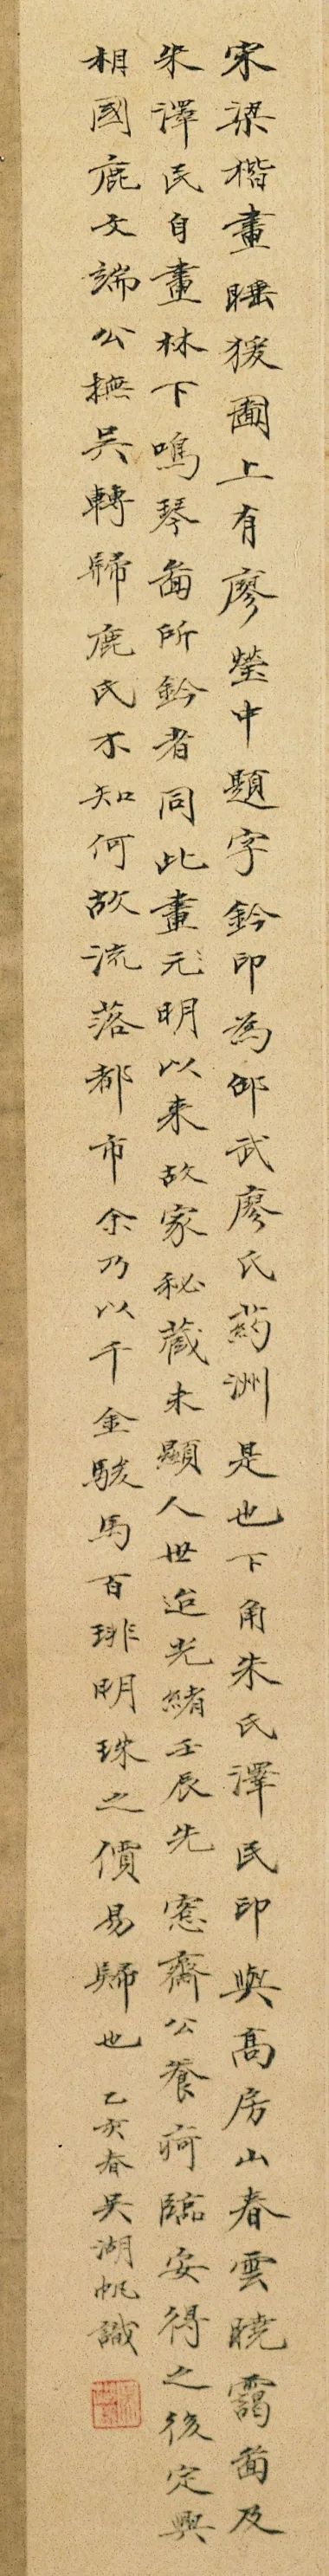 宋梁楷畫睡猨圖上有廖瑩中題字鈐印為邵武廖氏葯洲是也下角朱氏澤民印與高房山春雲曉靄啚及
朱澤民自畫林下鳴琴啚所鈐者同此畫元明以来故家秘藏未顯人世迨光緒壬辰先愙齋公養疴臨安得之後定興
相國鹿文端公撫吳轉歸鹿氏不知何故流落都市余乃以千金駿馬百琲明珠之價易歸也乙亥春吳湖帆識